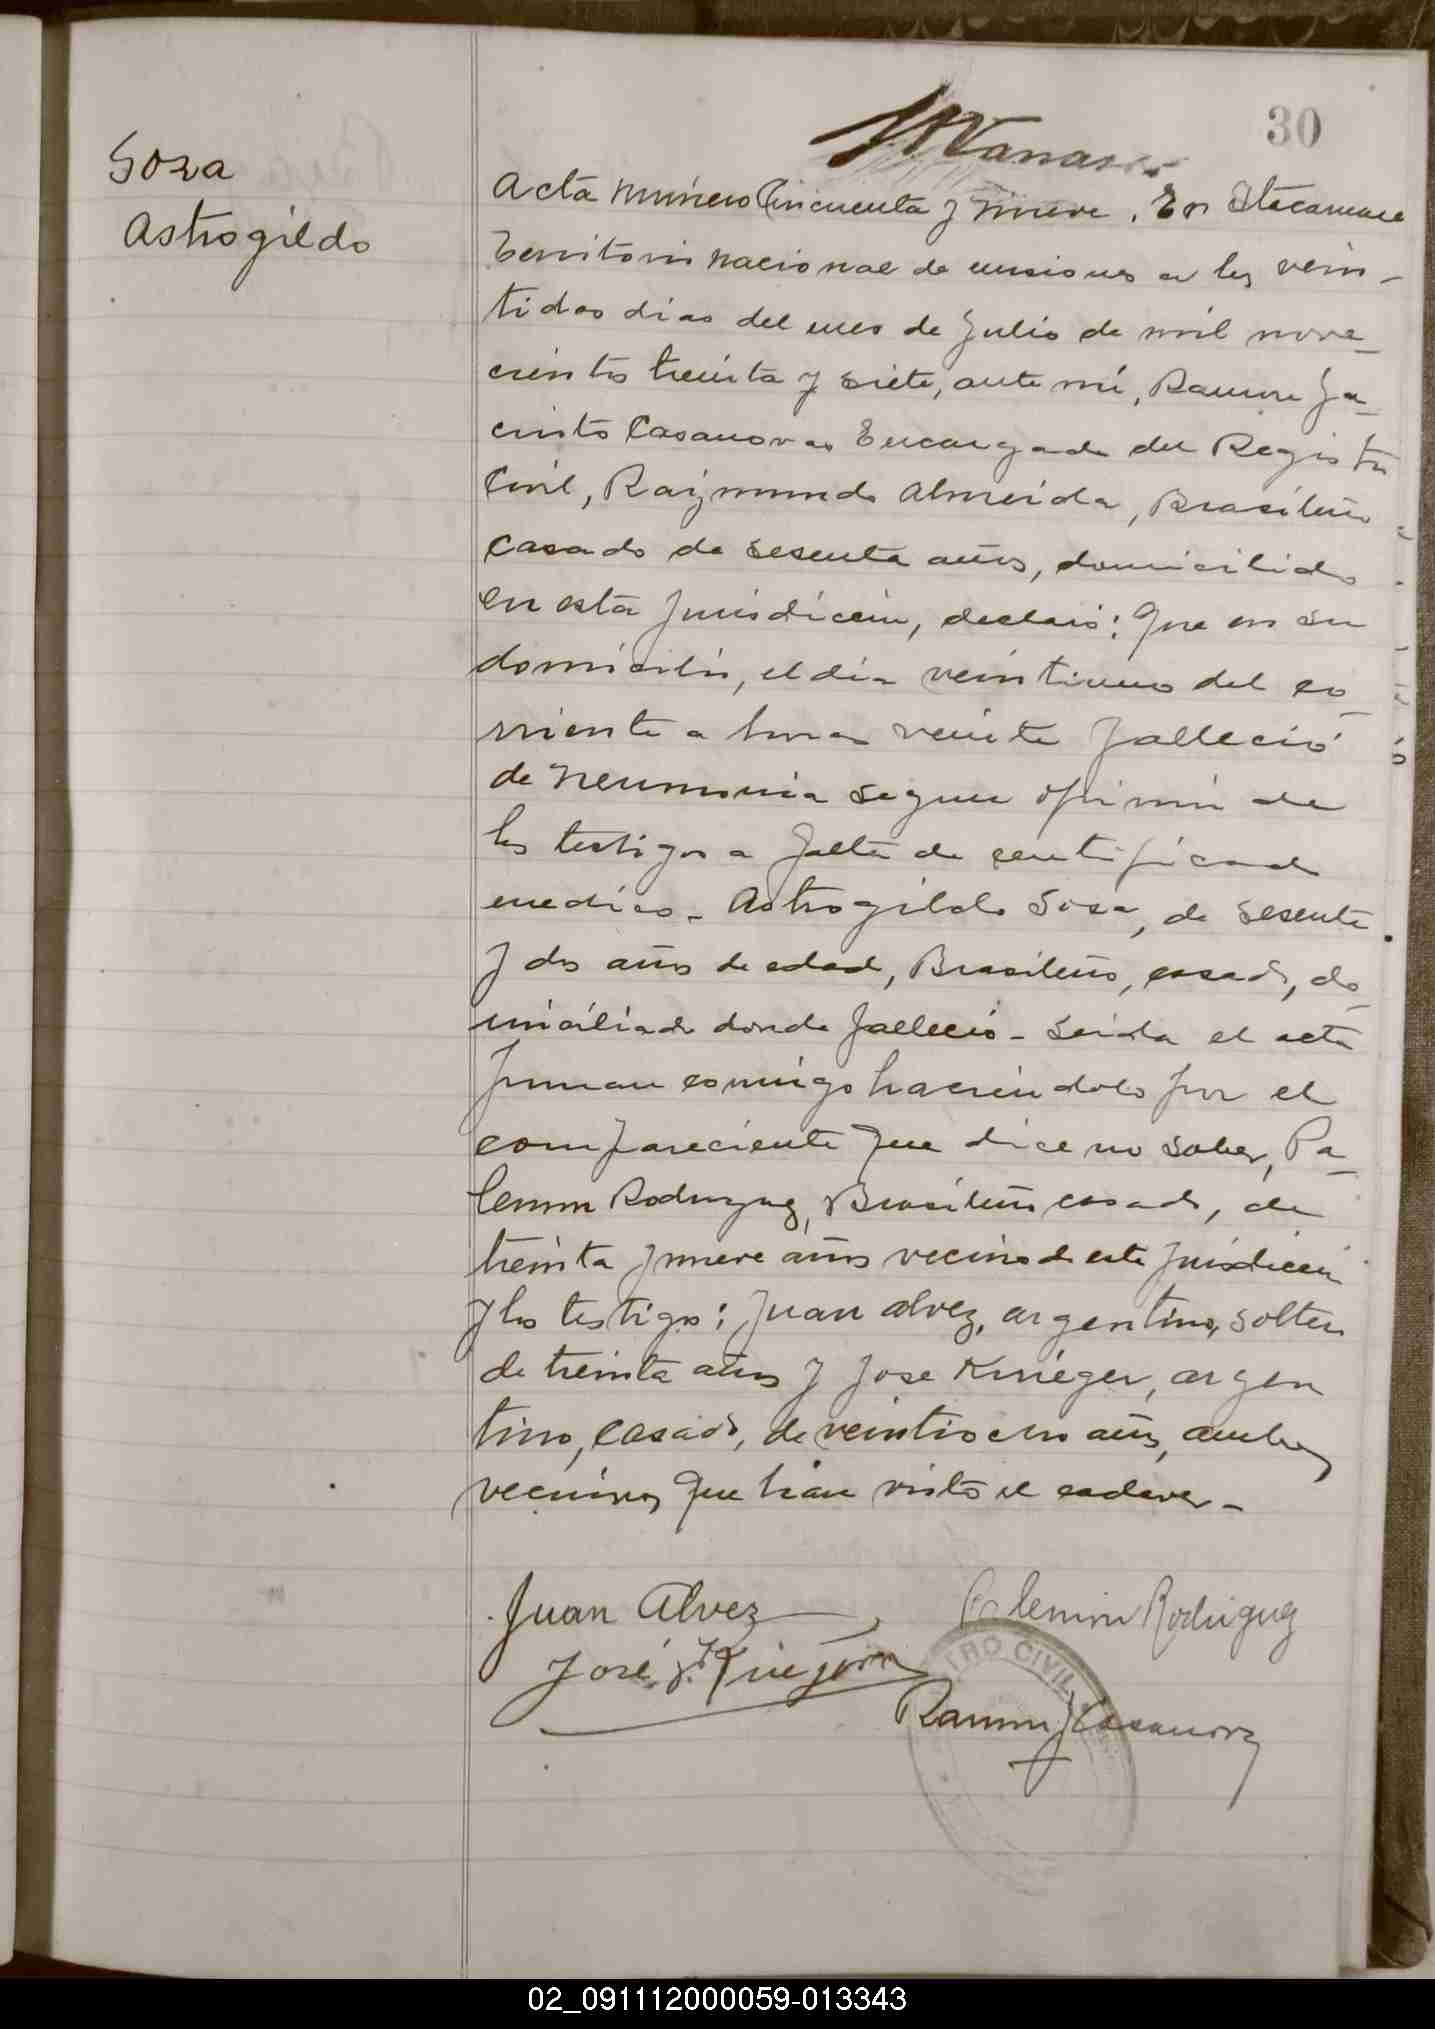 30
Sosa
Astrogildo
Acta número Cincuenta y nueve. En Itacaruare
Territorio nacional de misiones a los vein-
tidos dias del mes de Julio de mil nove-
cientos treinta y siete, ante mi, Ramon Ja-
cinto Casanovas Encargado del Registro
Civil, Raymundo Almeida, Brasileño
casado de sesenta años, domicilido
en esta Jurisdicción, declaró: Que en su
domicilio, el dia veintiuno del co-
rriente a horas veinte falleció
de neumonia segun opinión de
los testigos a falta de certificado
medico - Astrogildo Sosa, de sesenta
y dos años de edad, Brasileño, casado, do-
miciliado donde falleció - Leida el acta
firman conmigo haciendolo por el
compareciente que dice no saber, Pa-
lemon Rodriguez, Brasileño casado, de
treinta y nueve años vecino de esta jurisdicción
y los testigos: Juan Alvez, argentino, soltero
de treinta años y Jose Krieger, argen
tino, casado, de veintiocho años, ambos
vecinos, que han visto el cadaver -
Juan Alvez
Palemon Rodriguez
José
TRO CIVIL
Ramon J Casanova
02_091112000059-013343